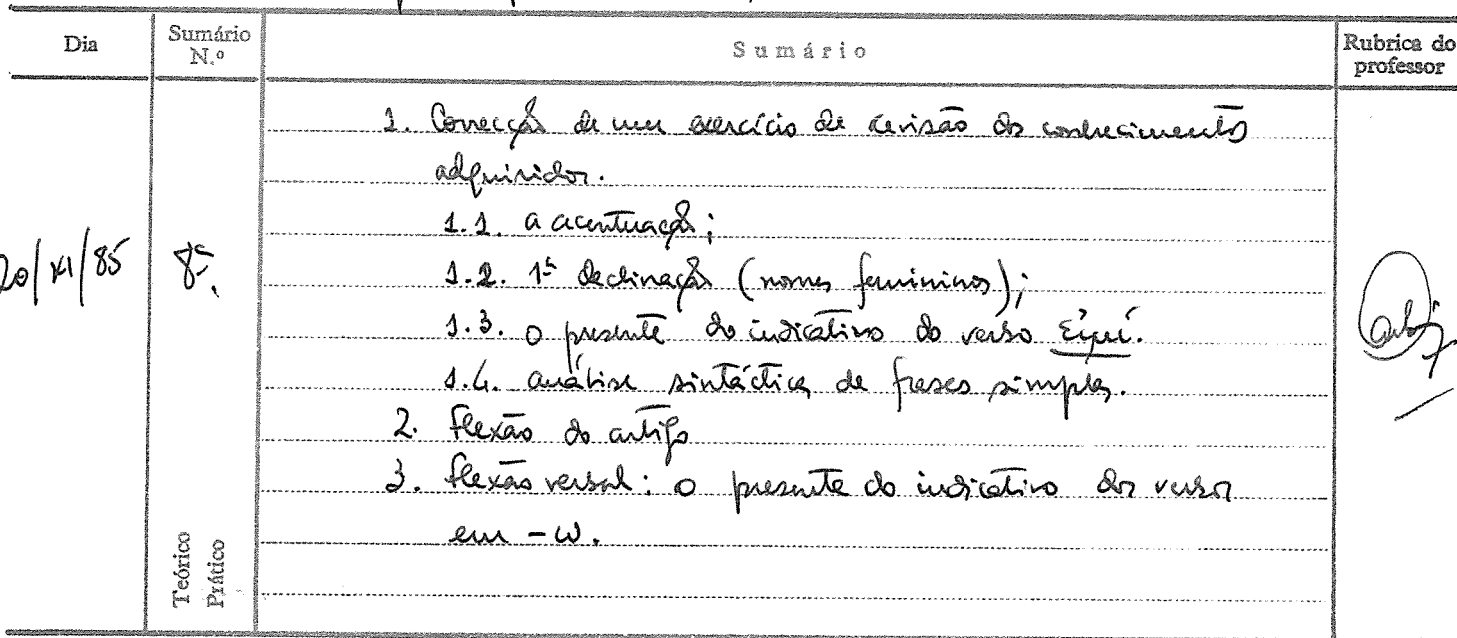 Dia
Sumário
N.º
Sumário
Rubrica do
professor
20/XI/85
8ª.
1. Correcção de um exercício de revisão dos conhecimentos
adquiridos.
1.1. a acentuação;
1.2. 1ª declinação (nomes femininos);
1.3. o presente do indicativo do verbo εἰμί.
1.4. análise sintáctica de frases simples.
2. flexão do artigo
3. flexão verbal: o presente do indicativo dos verbos
em -ω.
Teórico
Prático